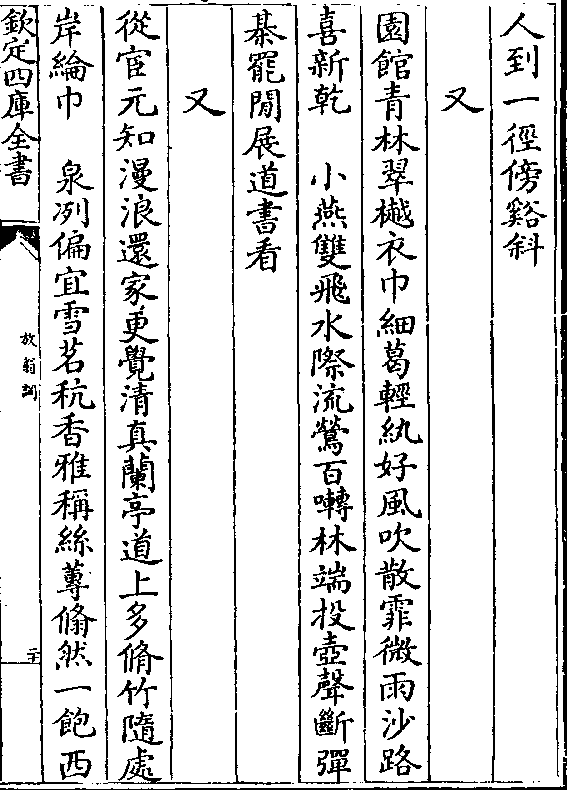 人到一徑傍谿斜
又
園館青林翠樾衣巾細葛輕紈好風吹散霏微雨沙路
喜新乾　小燕雙飛水際流鶯百囀林端投壺聲斷彈
棊罷閒展道書看
又
從宦元知漫浪還家更覺清真蘭亭道上多脩竹隨處
岸綸巾　泉冽偏宜雪茗秔香雅稱絲蓴翛然一飽西
欽定四庫全書
放翁詞
二十